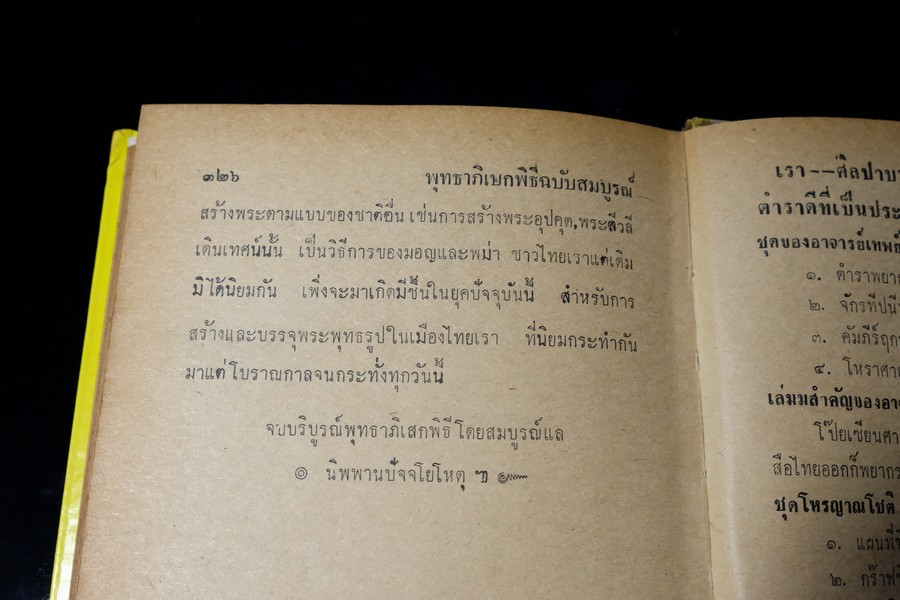 ๓๒๖ พุทธาภิเษกพิธีฉบับสมบูรณ์
สร้างพระตามแบบของชาติอื่น เช่นการสร้างพระอุปคุต, พระสีวลี
เดินเทศน์นั้น เป็นวิธีการของมอญและพม่า ชาวไทยเราแต่เดิม
มิได้นิยมกัน เพิ่งจะมาเกิดมีขึ้นในยุคปัจจุบันนี้ สำหรับการ
สร้างและบรรจุพระพุทธรูปในเมืองไทยเรา ที่นิยมกระทำกัน
มาแต่โบราณกาลจนกระทั่งทุกวันนี้
จบบริบูรณ์พุทธาภิเสกพิธีโดยสมบูรณ์แล
๏ นิพพานปัจจโยโหตุ ฯ ๛
เรา--ศิลปาบ
ตำราดีที่เป็นประ
ชุดของอาจารย์เทพย์
๑. ตำราพยา
๒. จักรทีปนี
๓. คัมภีร์ฤก
๔. โหราศา
เล่มมสำคัญของอา
โป๊ยเซียนศา
สือไทยออกก็พยากร
ชุดโหรญาณโชติ
๑. แผนที่
๒. กร๊าฟ